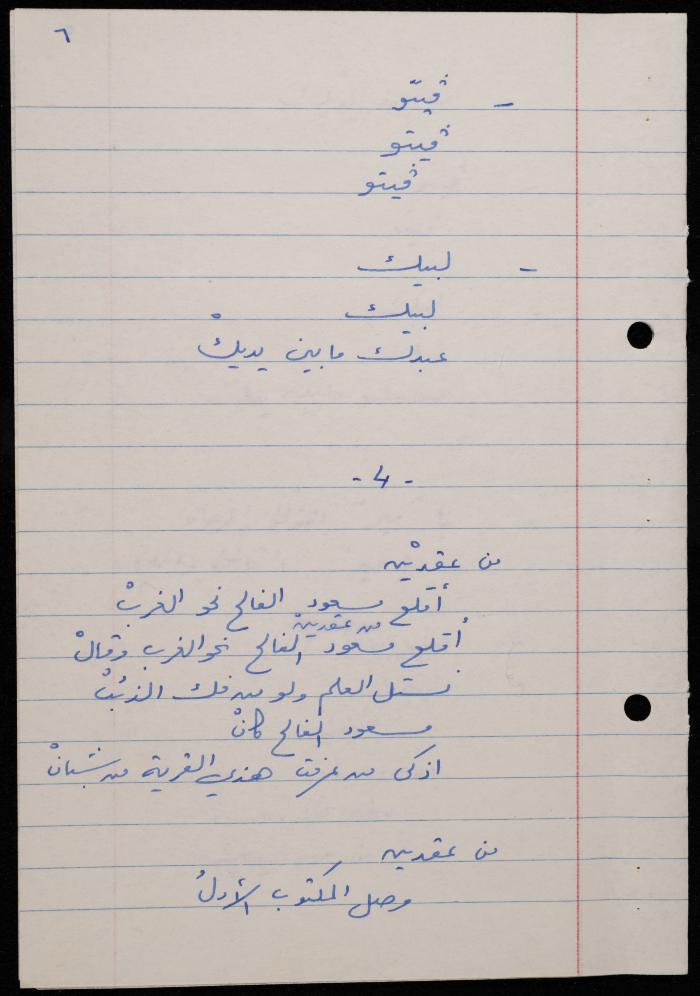 ٦
- ڤيتّو
ڤيتو
ڤيتو
- لبيك
لبيك
عبدك ما بين يديكْ
- 4 -
من عقدينْ
أقلع مسعود الفالح نحو الغربْ
من عقدينْ
أقلع مسعود الفالح نحو الغرب وقالْ
نستلّ العلم ولو من فك الذئبْ
مسعود الفالح كانْ
اذكى من عرفت هذي القرية من شبانْ
من عقدين
وصل المكتوب الأولْ